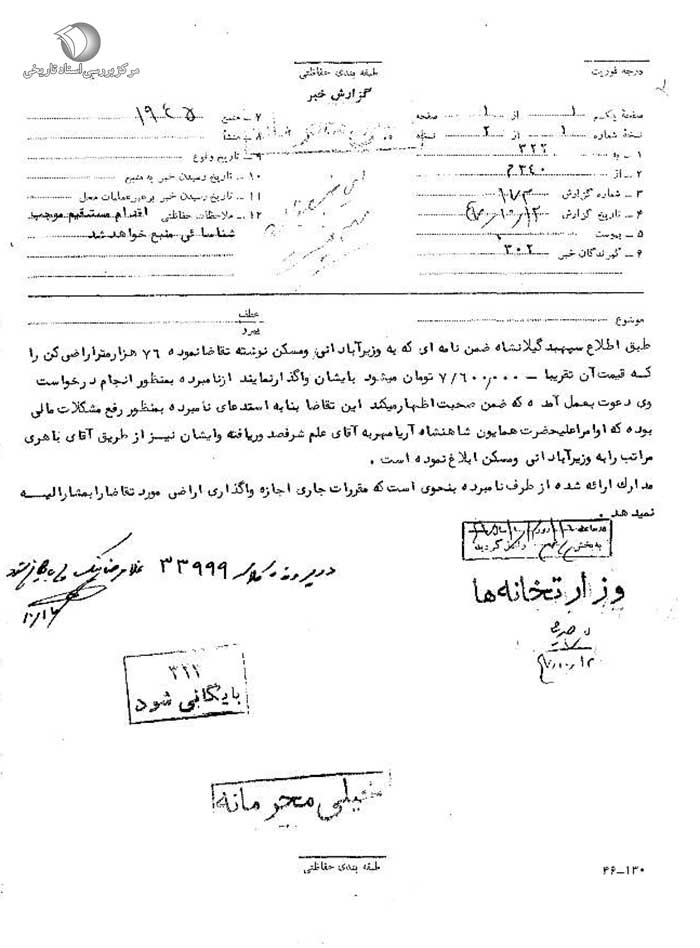 مرکز بررسی اسناد تاریخی
درجه فوریت
طبقه بندی حفاظتی
گزارش خبر
صفحه یکم ۱ از ۱ صفحه
نسخه شماره ۱ از ۲ نسخه
۱ ـ به ۳۲۲
۲ ـ از
۳ ـ شماره گزارش
۴ ـ تاریخ گزارش
۵ ـ پیوست
۶ ـ گیرندگان خبر ۳۰۲
۷ ـ منبع ۱۹۴۵
۸ ـ منشأ
۹ ـ تاریخ وقوع
۱۰ ـ تاریخ رسیدن خبر به منبع
۱۱ ـ تاریخ رسیدن خبر برهبر عملیات محل
۱۲ ـ ملاحظات حفاظتی اقدام مستقیم موجب
شناسائی منبع خواهد شد
موضوع
عطف
پیرو
طبق اطلاع سپهبد گیلانشاه ضمن نامه ای که به وزیر آبادانی ومسکن نوشته تقاضا نموده ۷۶ هزار متر اراضی کن را
که قیمت آن تقریبا ـ ۷/۶۰۰,۰۰۰ تومان میشود بایشان واگذار نمایند از نامبرده بمنظور انجام درخواست
وی دعوت بعمل آمده که ضمن صحبت اظهار میکند این تقاضا بنا به استدعای نامبرده بمنظور رفع مشکلات مالی
بوده که اوامر اعلیحضرت همایون شاهنشاه آریامهر به آقای علم شرفصد وریافته وایشان نیز از طریق آقای باهری
مراتب را به وزیر آبادانی ومسکن ابلاغ نموده است .
مدارک ارائه شده از طرف نامبرده بنحوی است که مقررات جاری اجازه واگذاری اراضی مورد تقاضا را بمشارالیه
نمیدهد .
به بخش واصل گردید
در پرونده کلاسه ۳۳۹۹۹
وزارتخانه ها
۳۲۲
بایگانی شود
خیلی محرمانه
طبقه بندی حفاظتی
۴۶ـ۱۳۰